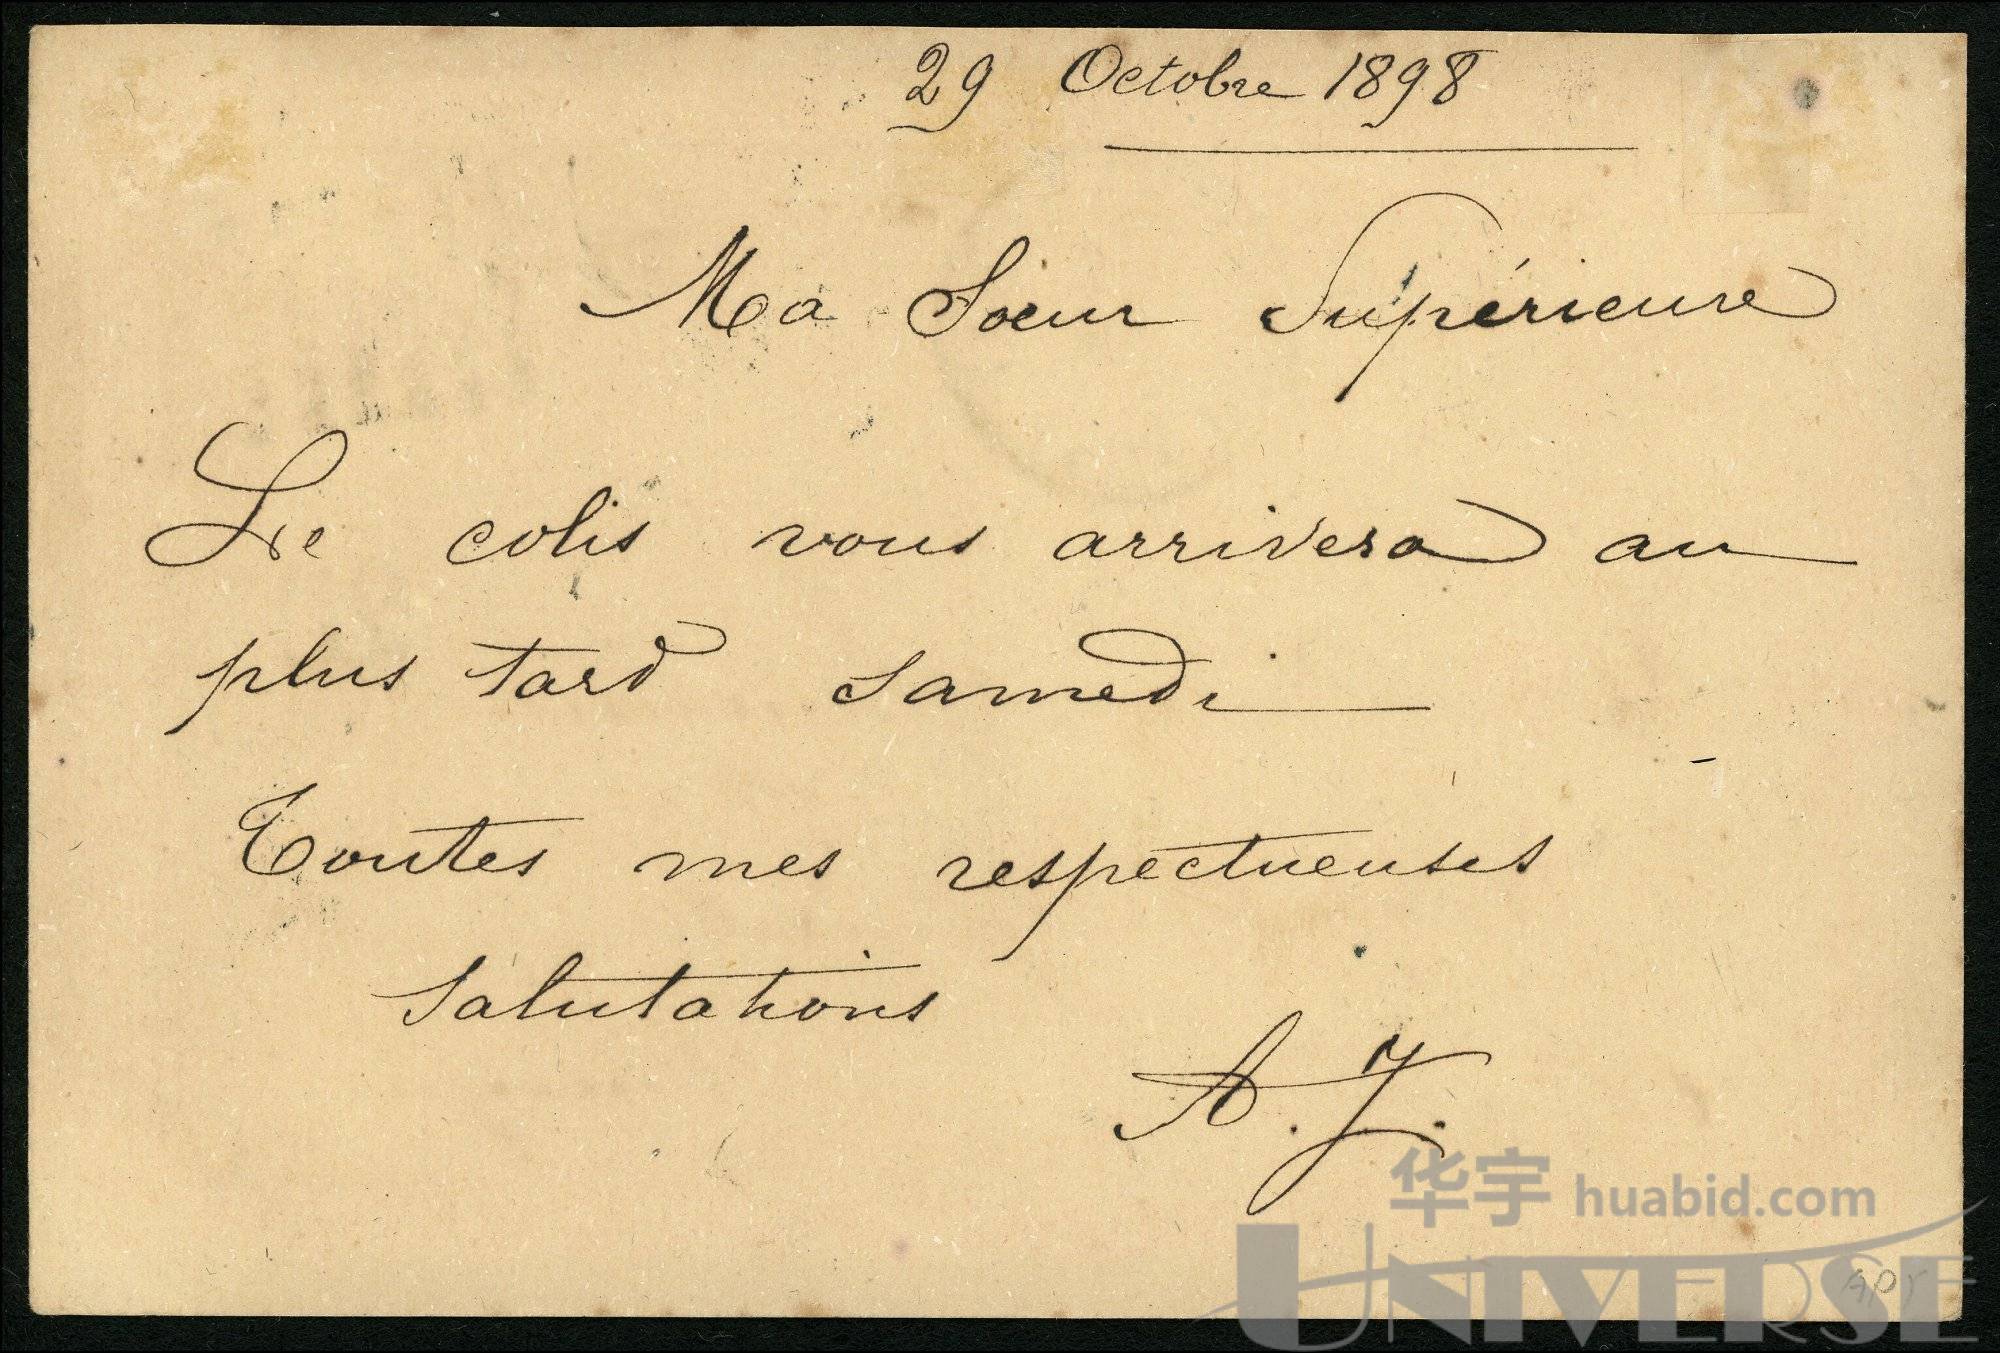 29 Octobre 1898
Ma Soeur Supérieure
Le colis vous arrivera au
plus tard samedi
Toutes mes respectueuses
salutations
A. J.
华宇 huabid.com
UNIVERSE